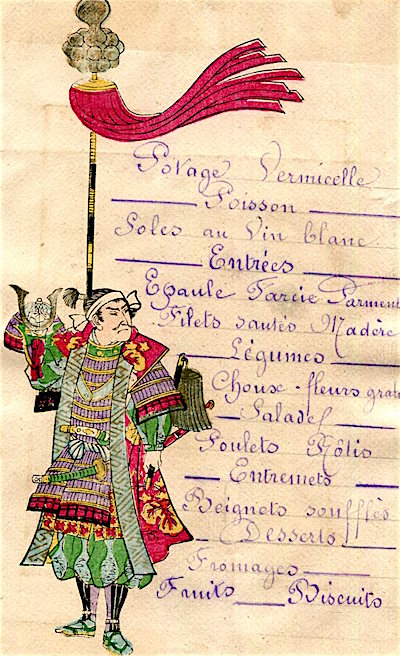 Potage Vermicelle
Poisson
Soles au Vin blanc
Entrées
Epaule Farcie Parment
Filets sautés Madère
Légumes
Choux-fleurs grat
Salades
Poulets Rôtis
Entremets
Beignets soufflés
Desserts
Fromages
Fruits Biscuits